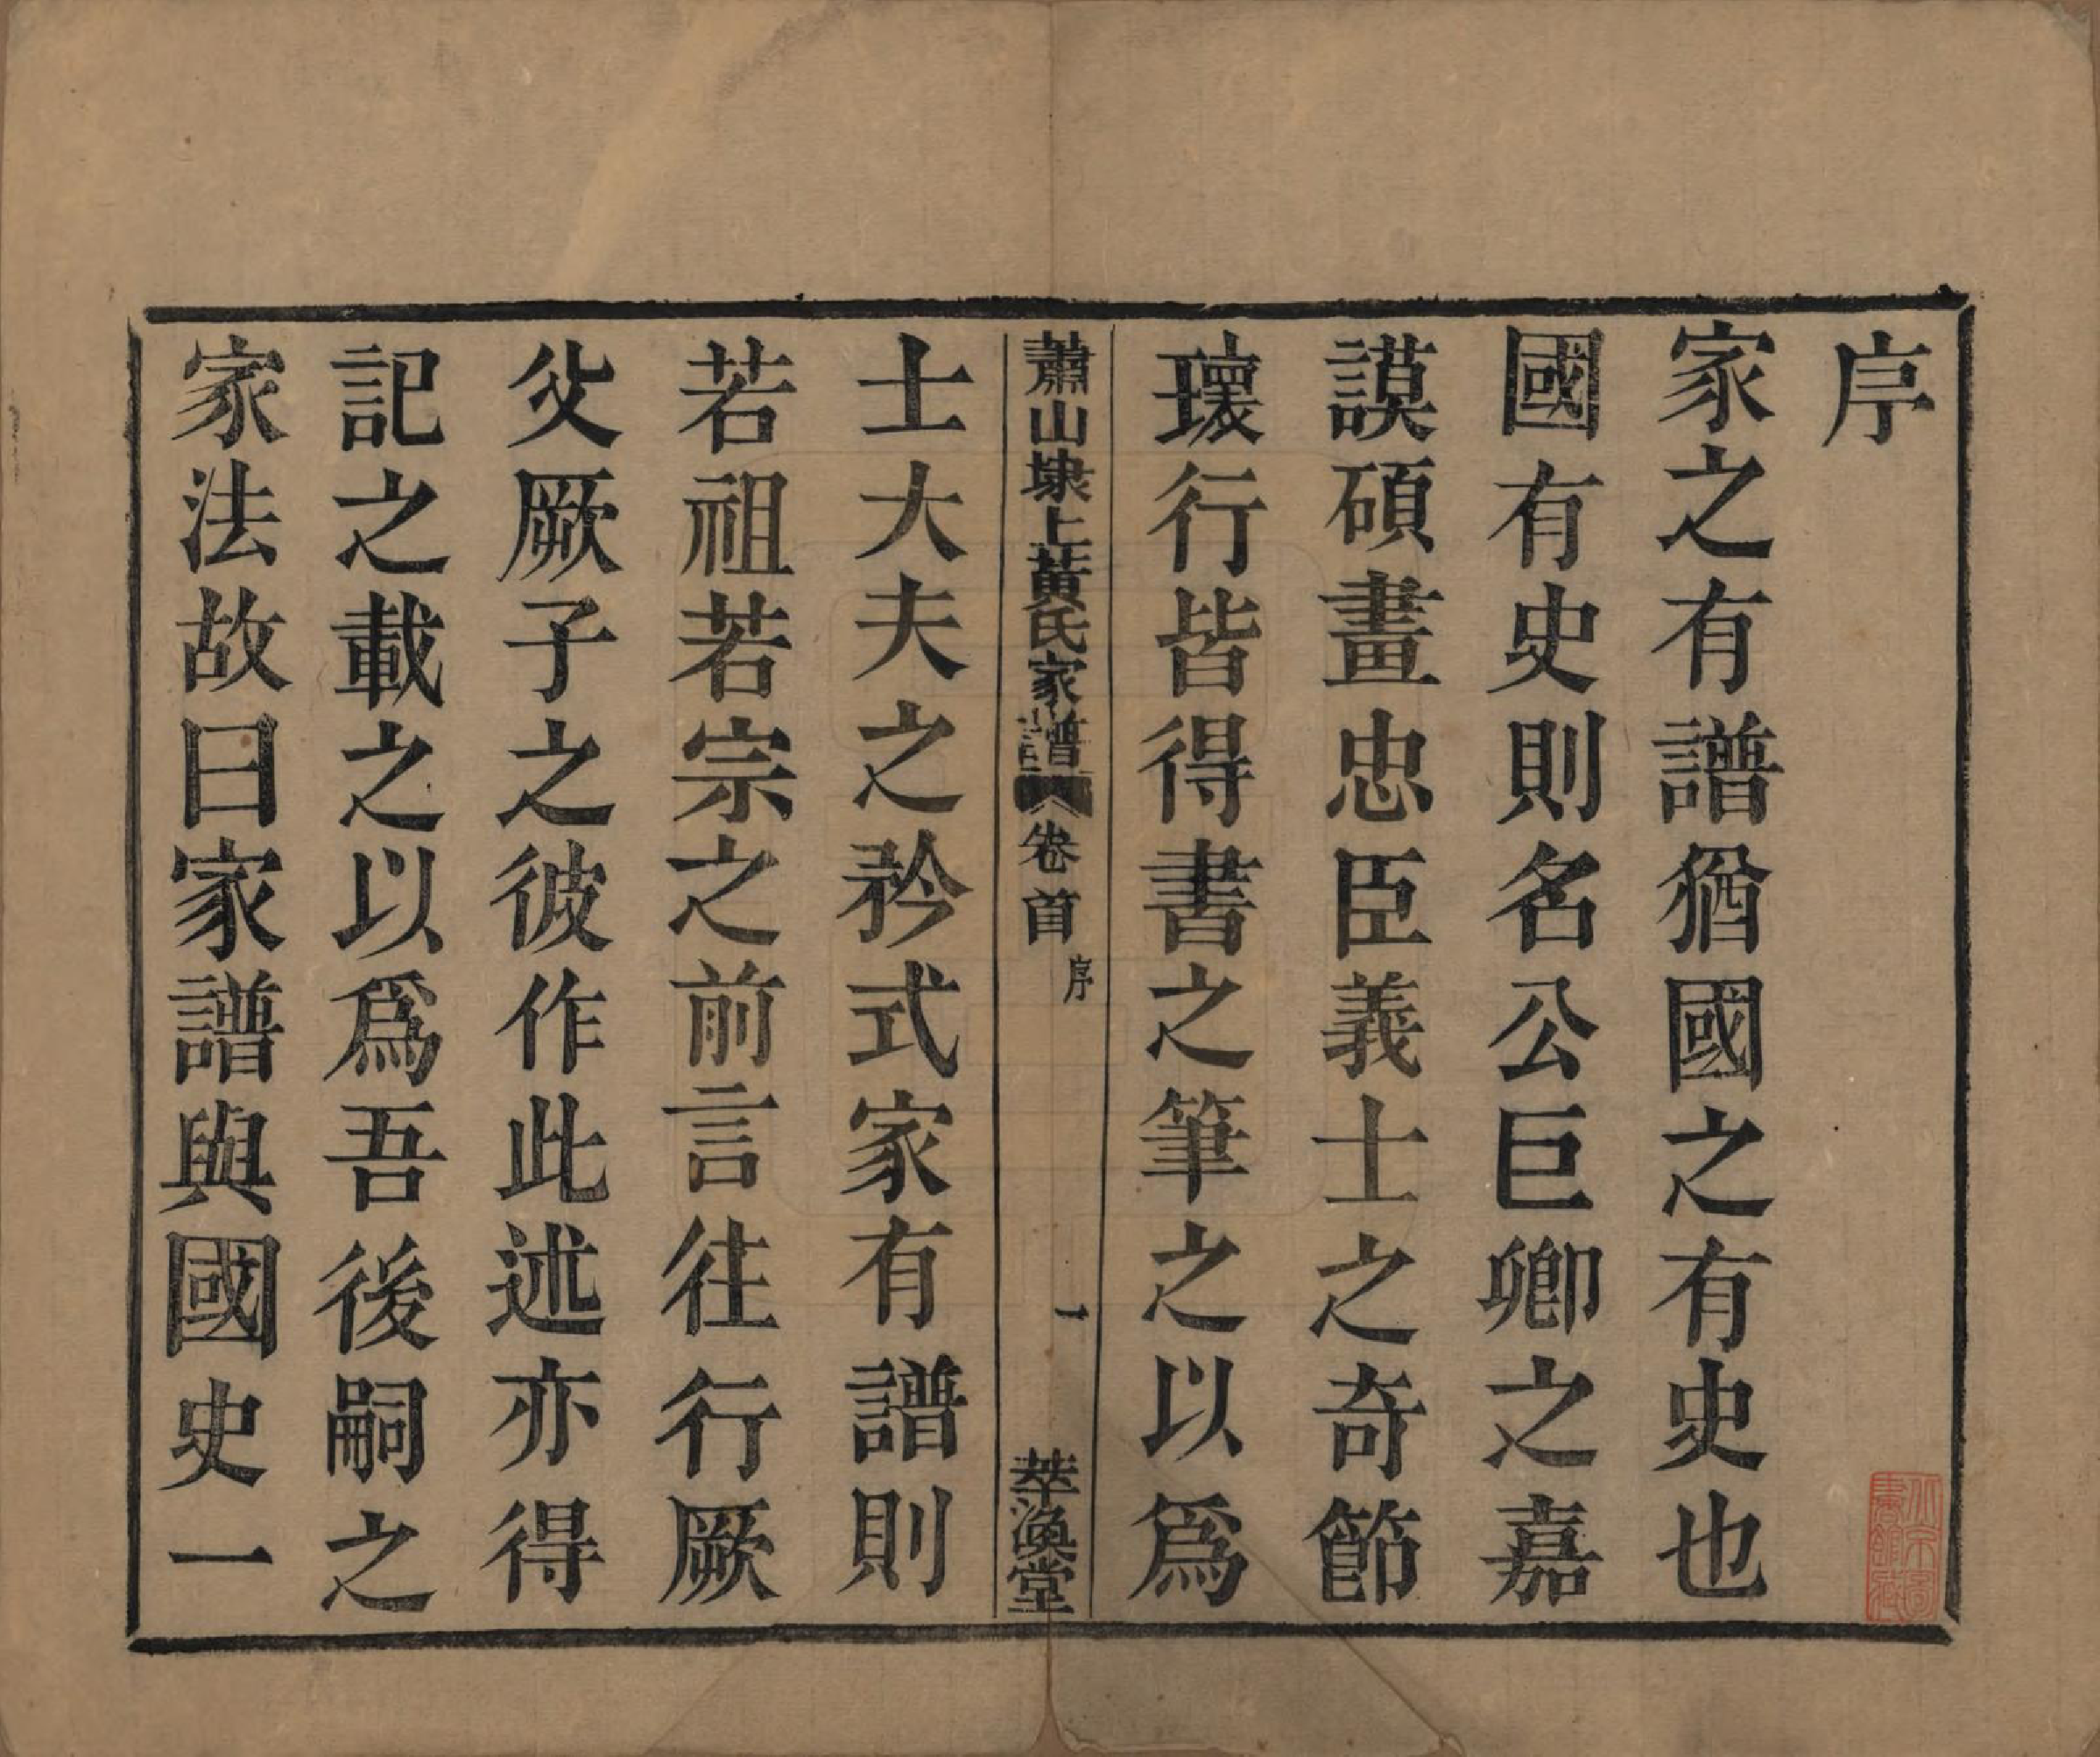 序
家之有譜猶國之有史也
國有史則名公巨卿之嘉
謨碩畫忠臣義士之奇節
瓌行皆得書之筆之以爲
蕭山埭上黃氏家譜 卷首 序 一 萃渙堂
士大夫之矜式家有譜則
若祖若宗之前言往行厥
父厥子之彼作此述亦得
記之載之以爲吾後嗣之
家法故曰家譜與國史一